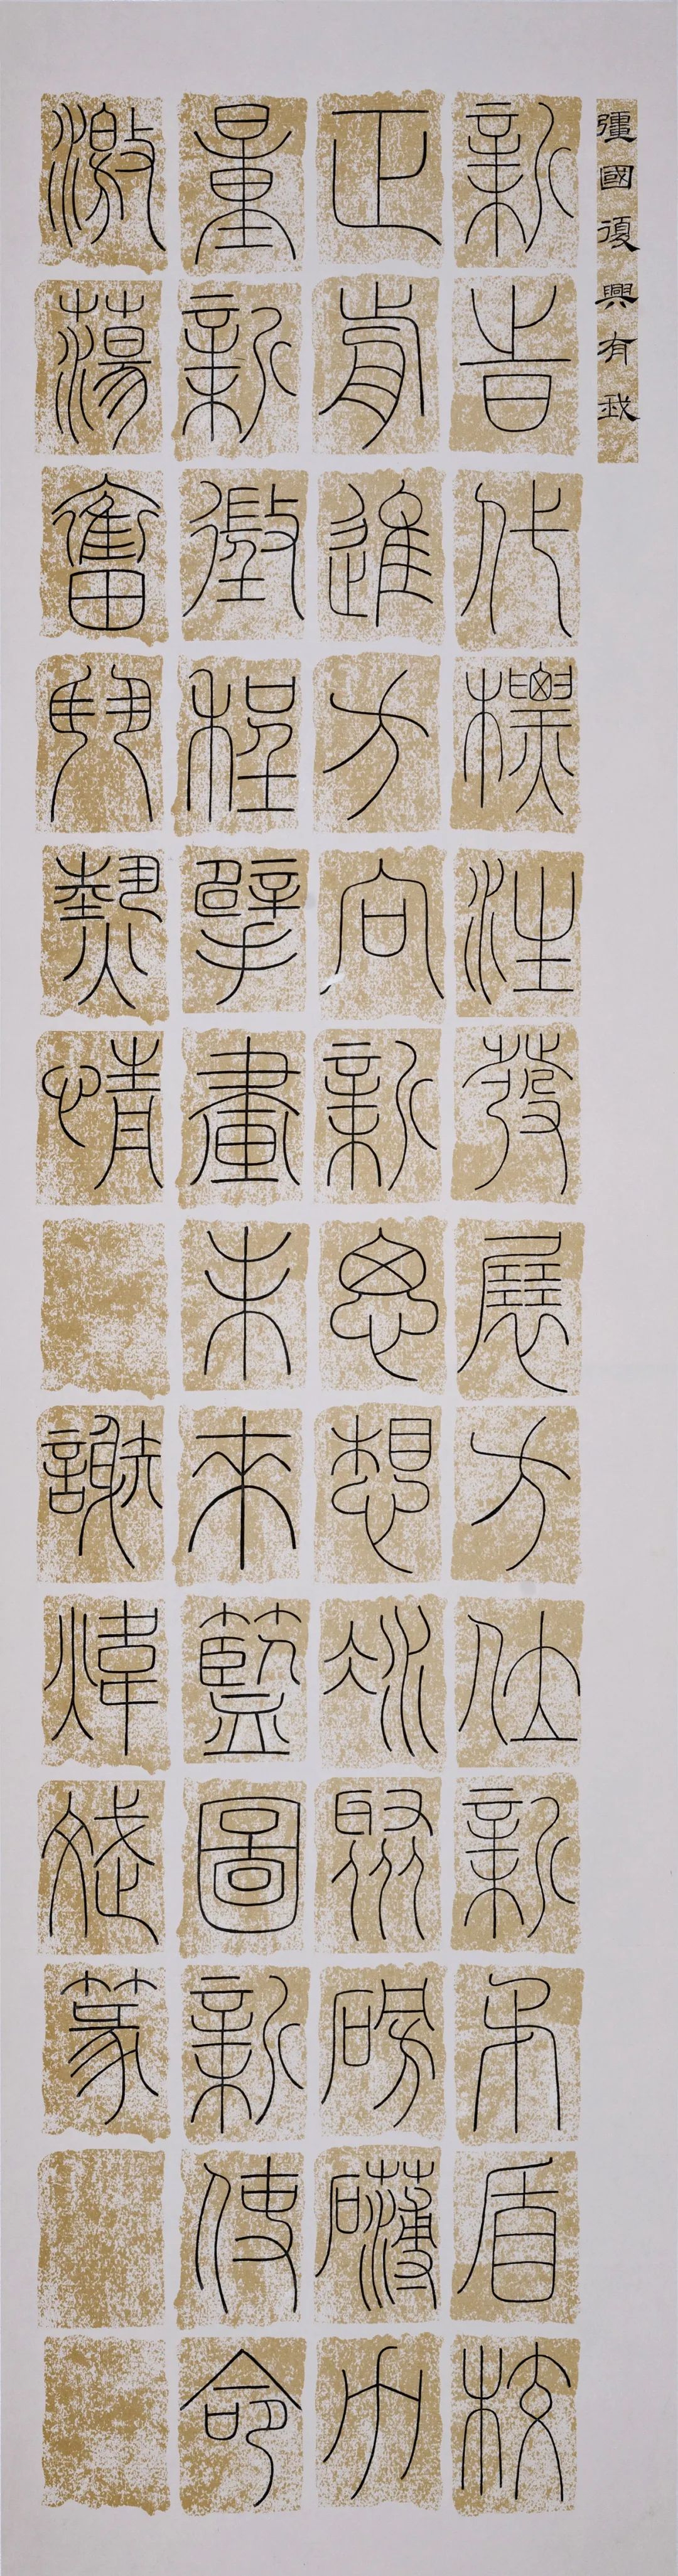 彊國復興有我
新旹代標注發展方位新矛盾校
正前進方向新思想冰聚磅礴力
量新徵程擘畫未來藍圖新使命
激蕩奮鬥熱情
謝煒斌篆